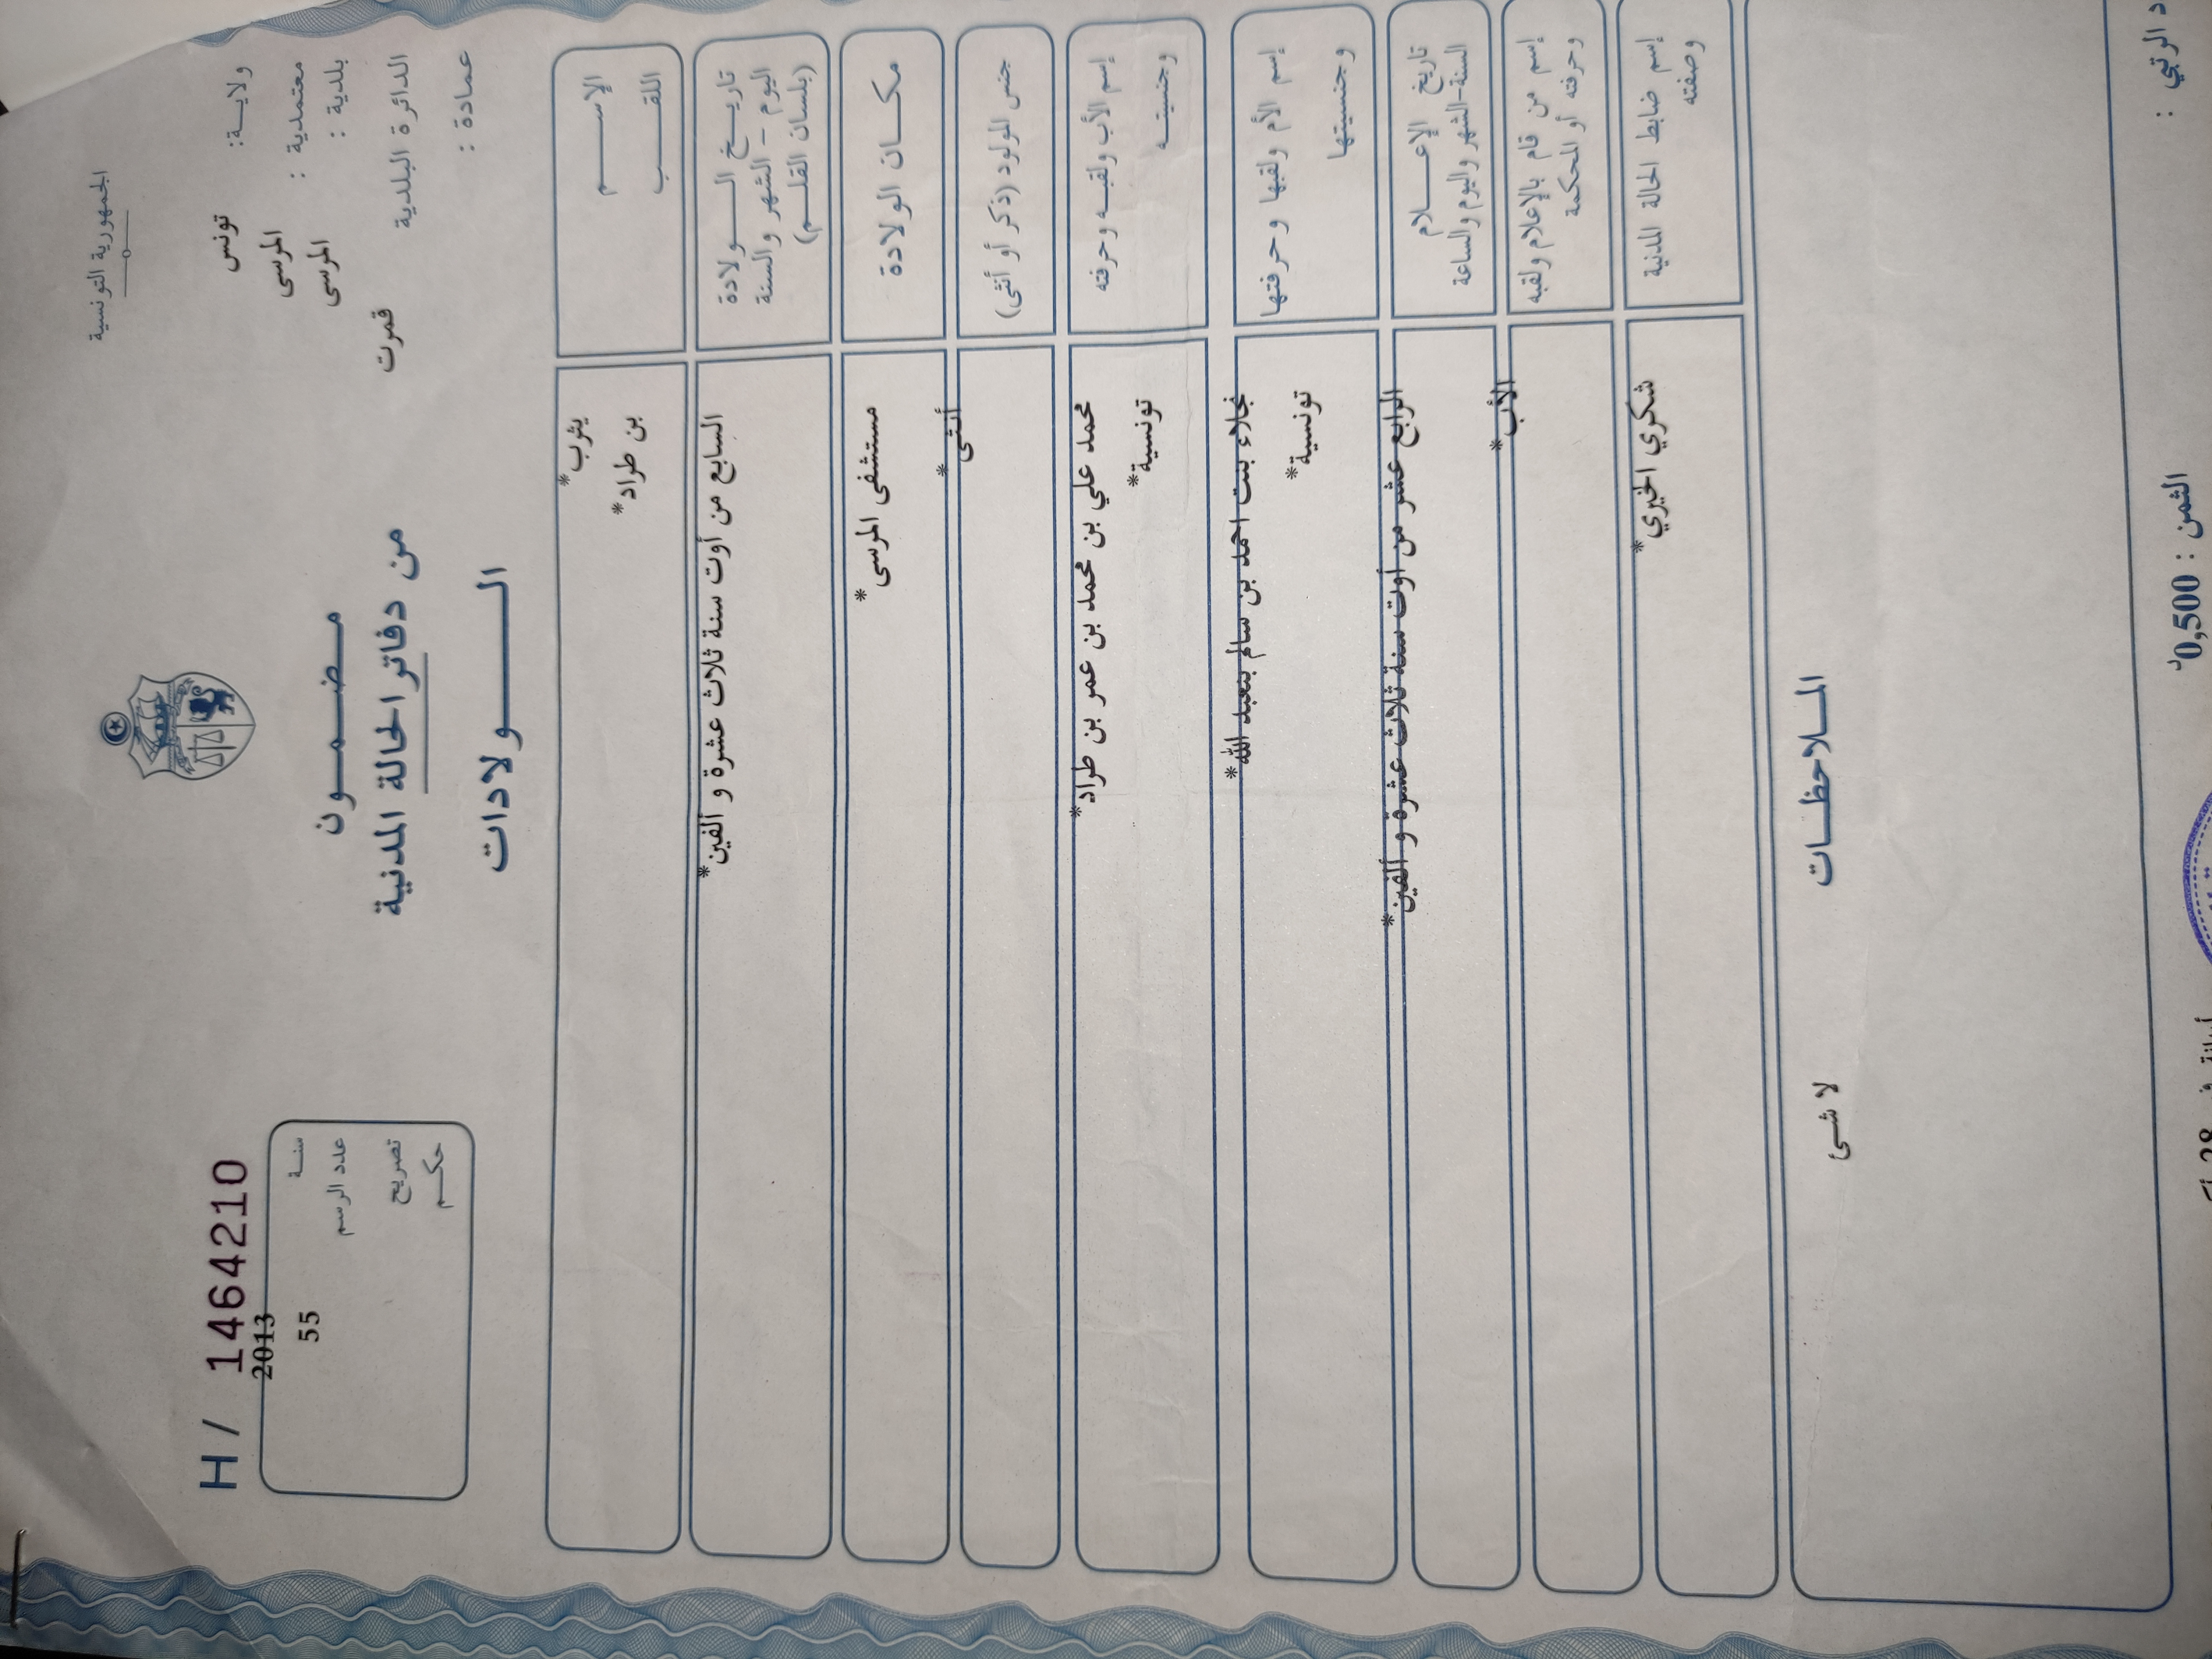 الجمهورية التونسية
ولايـــة: تونس
معتمدية : المرسى
بلدية : المرسى
الدائرة البلدية قمرت
عمادة :
H / 1464210
2013
سنـة
عدد الرسم 55
تصريح
حكـم
مـضـمـون
من دفاتر الحالة المدنية
الـــولادات
الإســـم يثرب*
اللقـــب بن طراد*
تاريـــخ الـــــولادة
اليوم – الشهر والسنة
(بلسان القلـــم)
السابع من أوت سنة ثلاث عشرة و ألفين*
مكـــان الولادة
مستشفى المرسى*
جنس المولود (ذكر أو أنثى)
أنثى*
إسم الأب ولقبـه وحرفته
وجنسيتـــه
محمد علي بن محمد بن عمر بن طراد*
تونسية*
إسم الأم ولقبها وحرفتها
وجنسيتها
نجلاء بنت احمد بن سالم بنعبد الله*
تونسية*
تاريخ الإعـــلام
السنة-الشهر واليوم والساعة
الرابع عشر من أوت سنة ثلاث عشرة و ألفين*
إسم من قام بالإعلام ولقبه
وحرفته أو المحكمة
الأب*
إسم ضابط الحالة المدنية
وصفته
شكري الخيري*
المـلاحظـــات
لا شـئ
د الرتبي :
الثمن : 0,500د
28